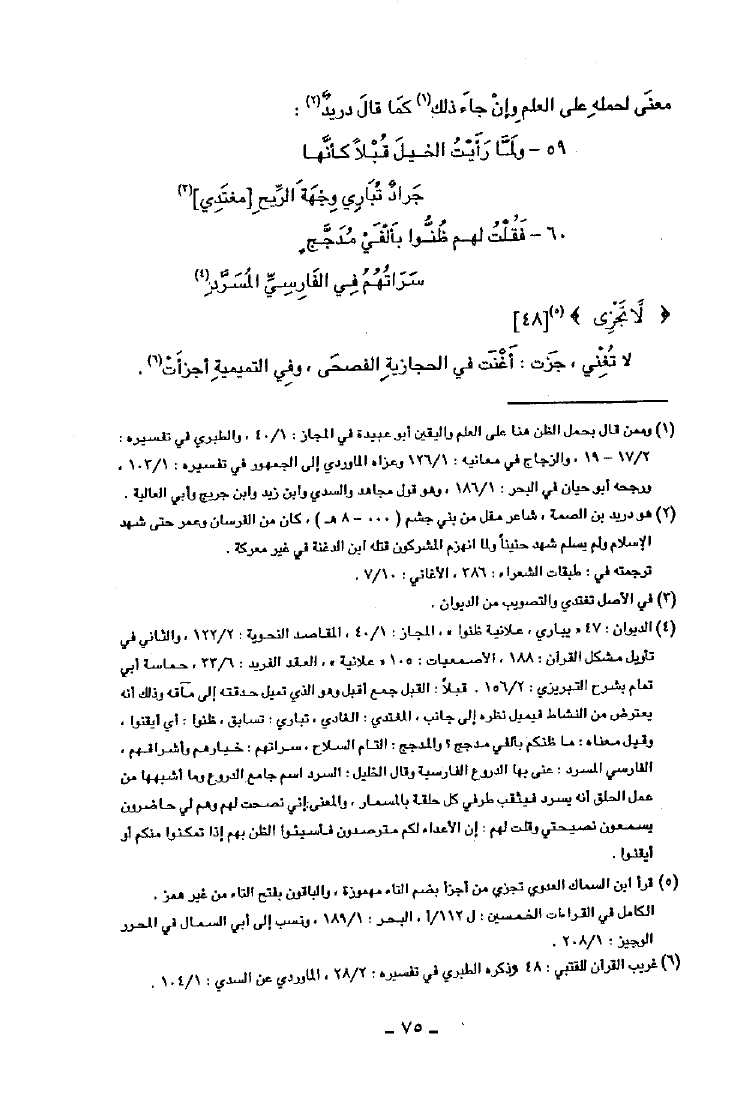 معنَى لحملهِ على العلم وإنْ جاءَ ذلك(١) كمَا قالَ دريدٌ(٢) :
٥٩ – ولَمَّا رَأَيْتُ الخيلَ قُبْلاً كأنَّها
جَرادٌ تُبَارِي وِجْهَةَ الرِّيحِ [مغتَدِي](٣)
٦٠ – فَقُلْتُ لهم ظُنُّوا بأَلْفَيْ مُدَجَّجٍ
سَرَاتُهُمُ فِي الفَارِسِيِّ المُسَرَّدِ(٤)
﴿ لَّا تَجْزِى ﴾(٥)[٤٨]
لا تُغْنِي ، جزَت : أغْنَت في الحجازيةِ الفصحَى ، وفي التميمية أجزأتْ(٦) .
(١) وممن قال بحمل الظن هنا على العلم واليقين أبو عبيدة في المجاز : ٤٠/١ ، والطبري في تفسيره :
١٧/٢ – ١٩ ، والزجاج في معانيه : ١٢٦/١ وعزاه الماوردي إلى الجمهور في تفسيره : ١٠٣/١ ،
ورجحه أبو حيان في البحر : ١٨٦/١ ، وهو قول مجاهد والسدي وابن زيد وابن جريج وأبي العالية .
(٢) هو دريد بن الصمة ، شاعر مقل من بني جشم ( ٠٠٠ – ٨ هـ ) ، كان من الفرسان وعمر حتى شهد
الإسلام ولم يسلم شهد حنيناً ولما انهزم المشركون قتله ابن الدغنة في غير معركة .
ترجمته في : طبقات الشعراء : ٣٨٦ ، الأغاني : ٧/١٠ .
(٣) في الأصل تغتدي والتصويب من الديوان .
(٤) الديوان : ٤٧ « يباري ، علانية ظنوا » ، المجاز : ٤٠/١ ، المقاصد النحوية : ١٢٢/٢ ، والثاني في
تأويل مشكل القرآن : ١٨٨ ، الأصمعيات : ١٠٥ « علانية » ، العقد الفريد : ٣٣/٦ ، حماسة أبي
تمام بشرح التبريزي : ١٥٦/٢ . قبلاً : القبل جمع أقبل وهو الذي تميل حدقته إلى مآقه وذلك أنه
يعترض من النشاط فيميل نظره إلى جانب ، المغتدي : الغادي ، تباري : تسابق ، ظنوا : أي أيقنوا ،
وقيل معناه : ما ظنكم بألفي مدجج ؟ والمدجج : التام السلاح ، سراتهم : خيارهم وأشرافهم ،
الفارسي المسرد : عنى بها الدروع الفارسية وقال الخليل : السرد اسم جامع الدروع وما أشبهها من
عمل الحلق أنه يسرد فيثقب طرفي كل حلقة بالمسمار ، والمعنى إني نصحت لهم وهم لي حاضرون
يسمعون نصيحتي وقلت لهم : إن الأعداء لكم مترصدون فأسيئوا الظن بهم إذا تمكنوا منكم أو
أيقنوا .
(٥) قرأ ابن السماك العدوي تجزي من أجزأ بضم التاء مهموزة ، والباقون بفتح التاء من غير همز .
الكامل في القراءات الخمسين : ل ١١٢/أ ، البحر : ١٨٩/١ ، ونسب إلى أبي السمال في المحرر
الوجيز : ٢٠٨/١ .
(٦) غريب القرآن للقتبي : ٤٨ وذكره الطبري في تفسيره : ٢٨/٢ ، الماوردي عن السدي : ١٠٤/١ .
– ٧٥ –